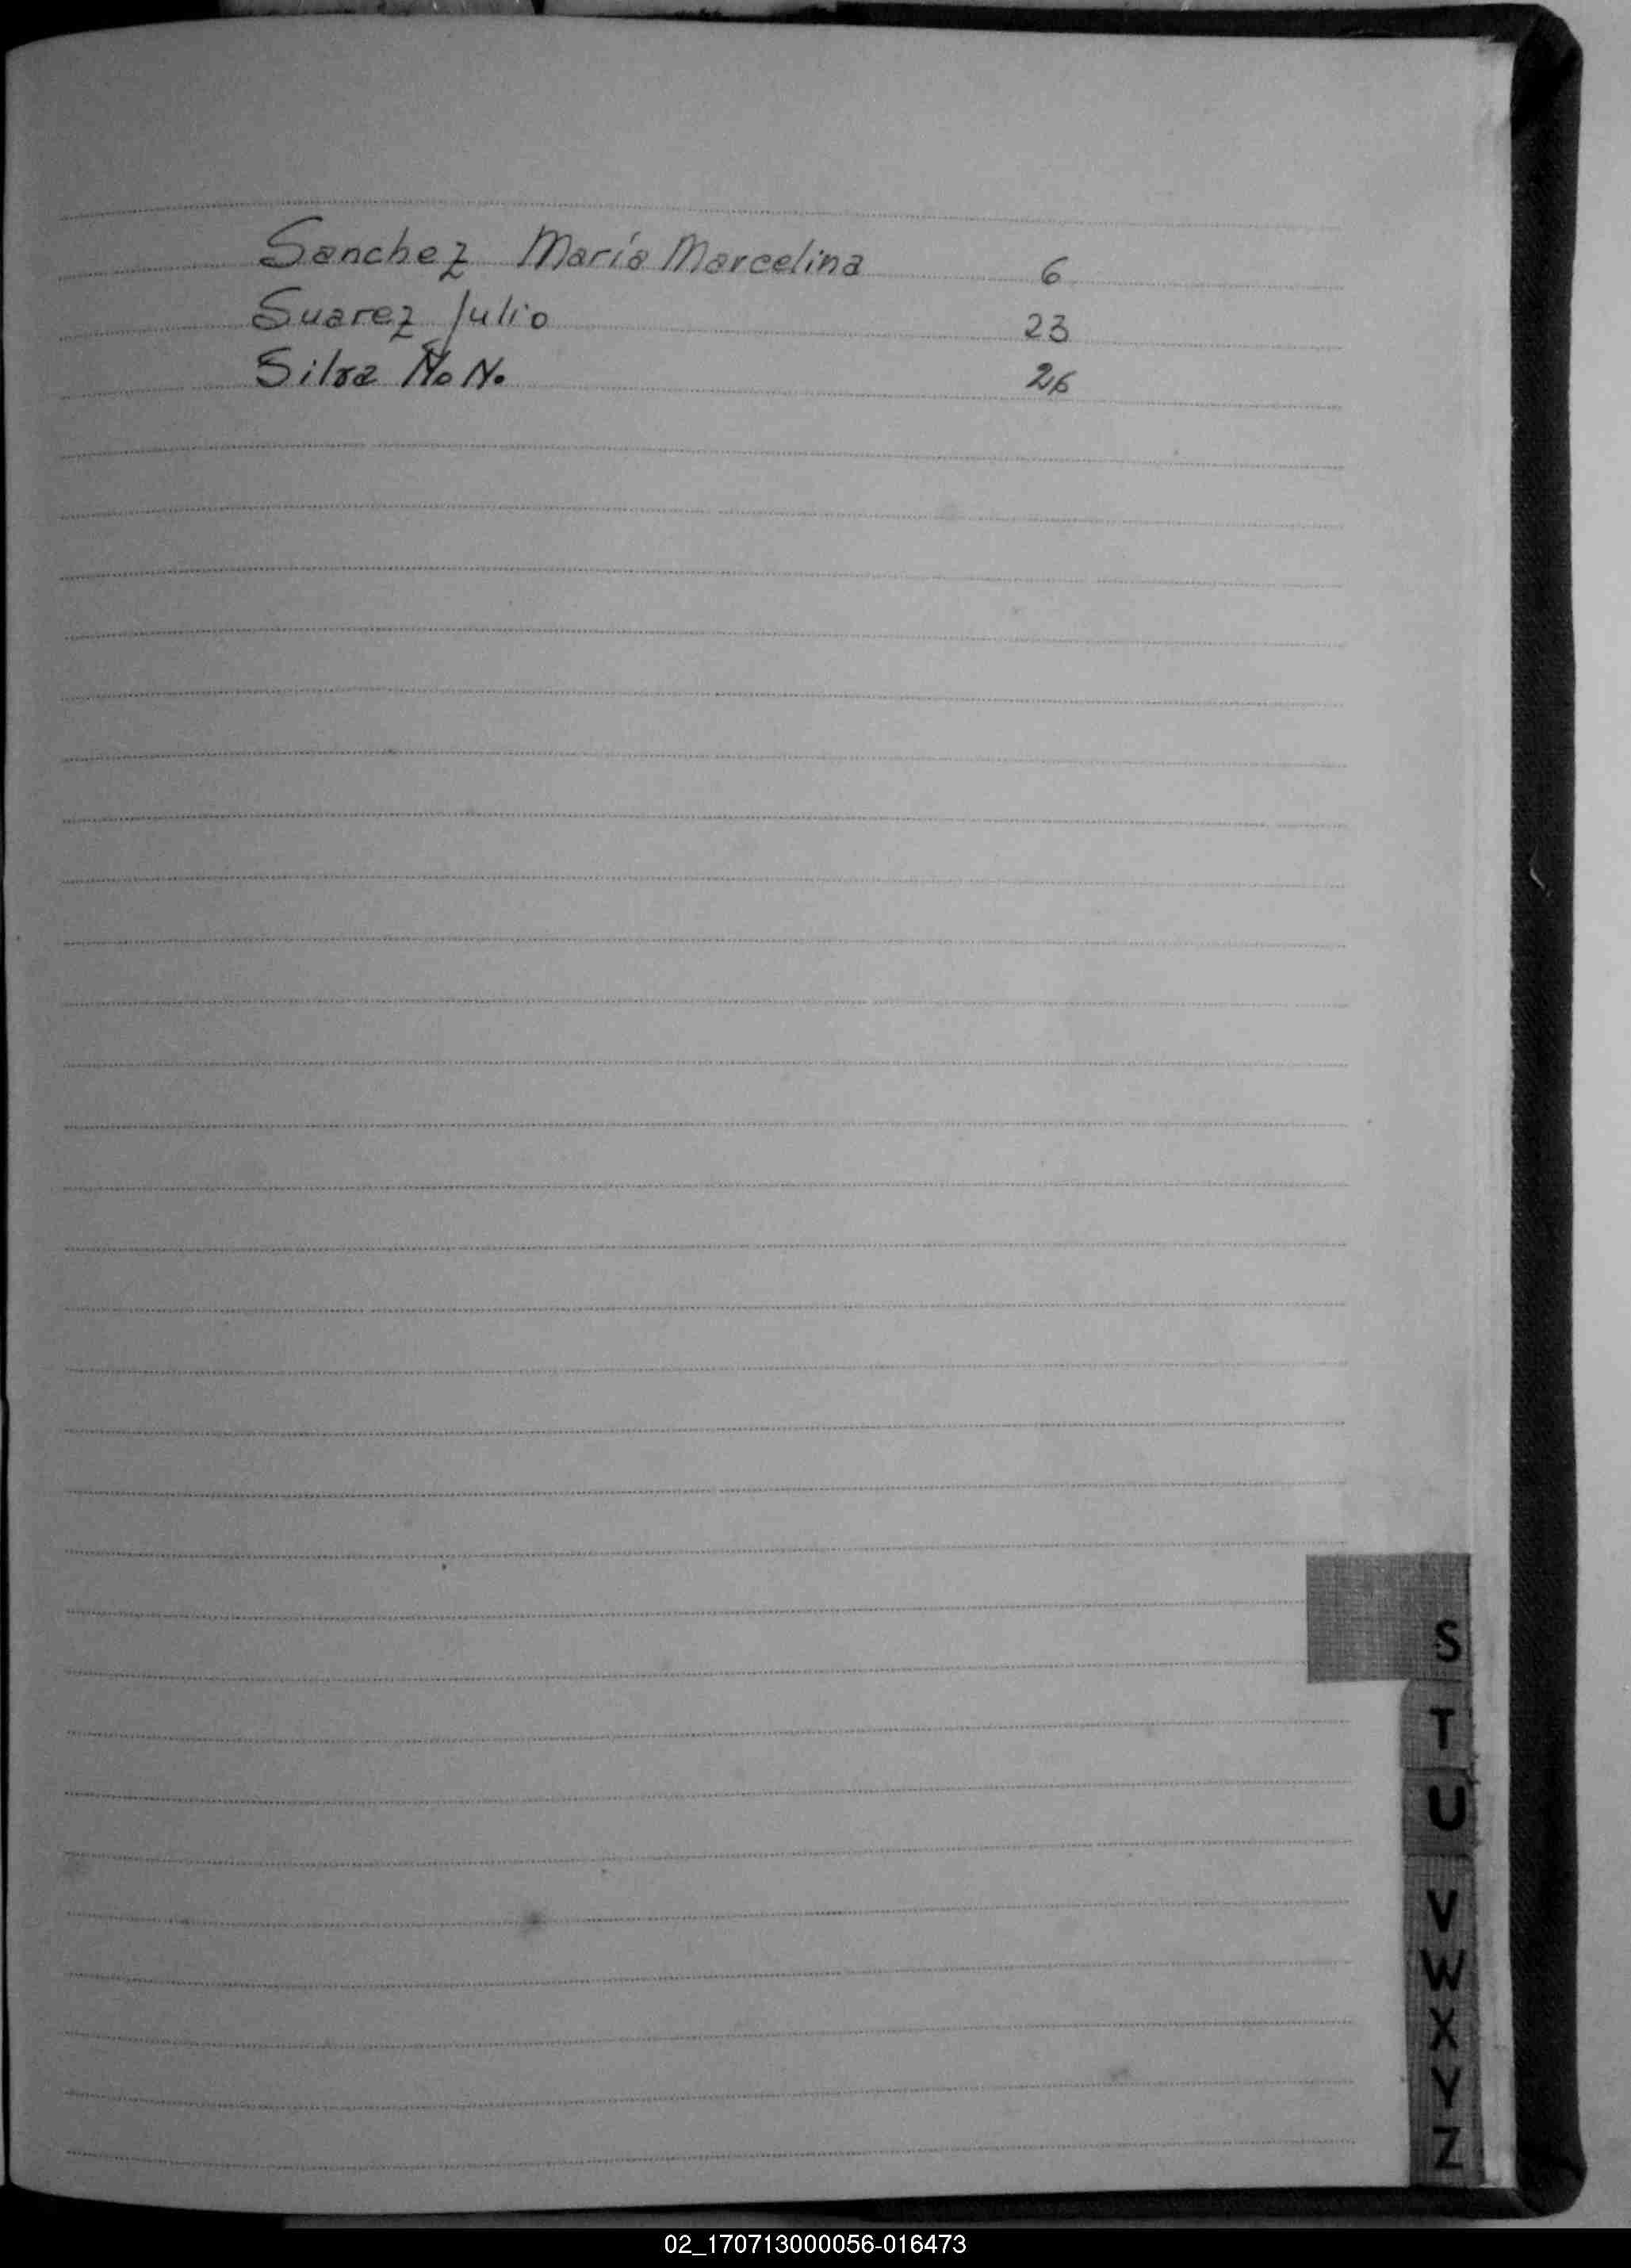 Sanchez María Marcelina 6
Suarez Julio 23
Silva N.N. 26
S
T
U
V
W
X
Y
Z
02_170713000056-016473